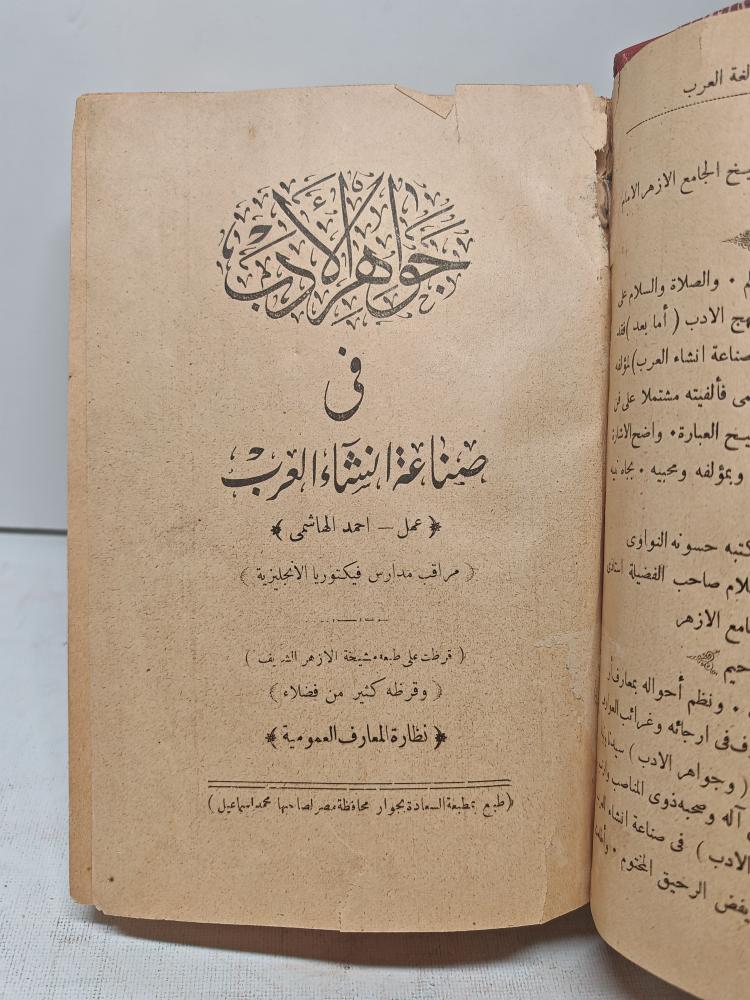 جواهر الأدب
فى
صناعة انشاء العرب
﴿ عمل – احمد الهاشمى ﴾
( مراقب مدارس فيكتوريا الانجليزية )
( قرظت على طبعه مشيخة الازهر الشريف )
( وقرظه كثير من فضلاء )
﴿ نظارة المعارف العمومية ﴾
( طبع بمطبعة السعادة بجوار محافظة مصر لصاحبها محمد اسماعيل )
لغة العرب
الجامع الازهر الامام
والصلاة والسلام على
الادب ( أما بعد ) فقد
صناعة انشاء العرب ) لمؤلفه
فألفيته مشتملا على فن
العبارة ۰ واضح الاشارة
وبمؤلفه ومحبيه ۰ بجاه نبيه
كتبه حسونه النواوى
صاحب الفضيلة استاذى
الازهر
۰ ونظم أحواله بمعارف
فى ارجائه وغرائب العوارف
( وجواهر الادب ) سيدنا
آله وصحبه ذوى المناصب
الادب ) فى صناعة انشاء
يفض الرحيق المختوم ۰